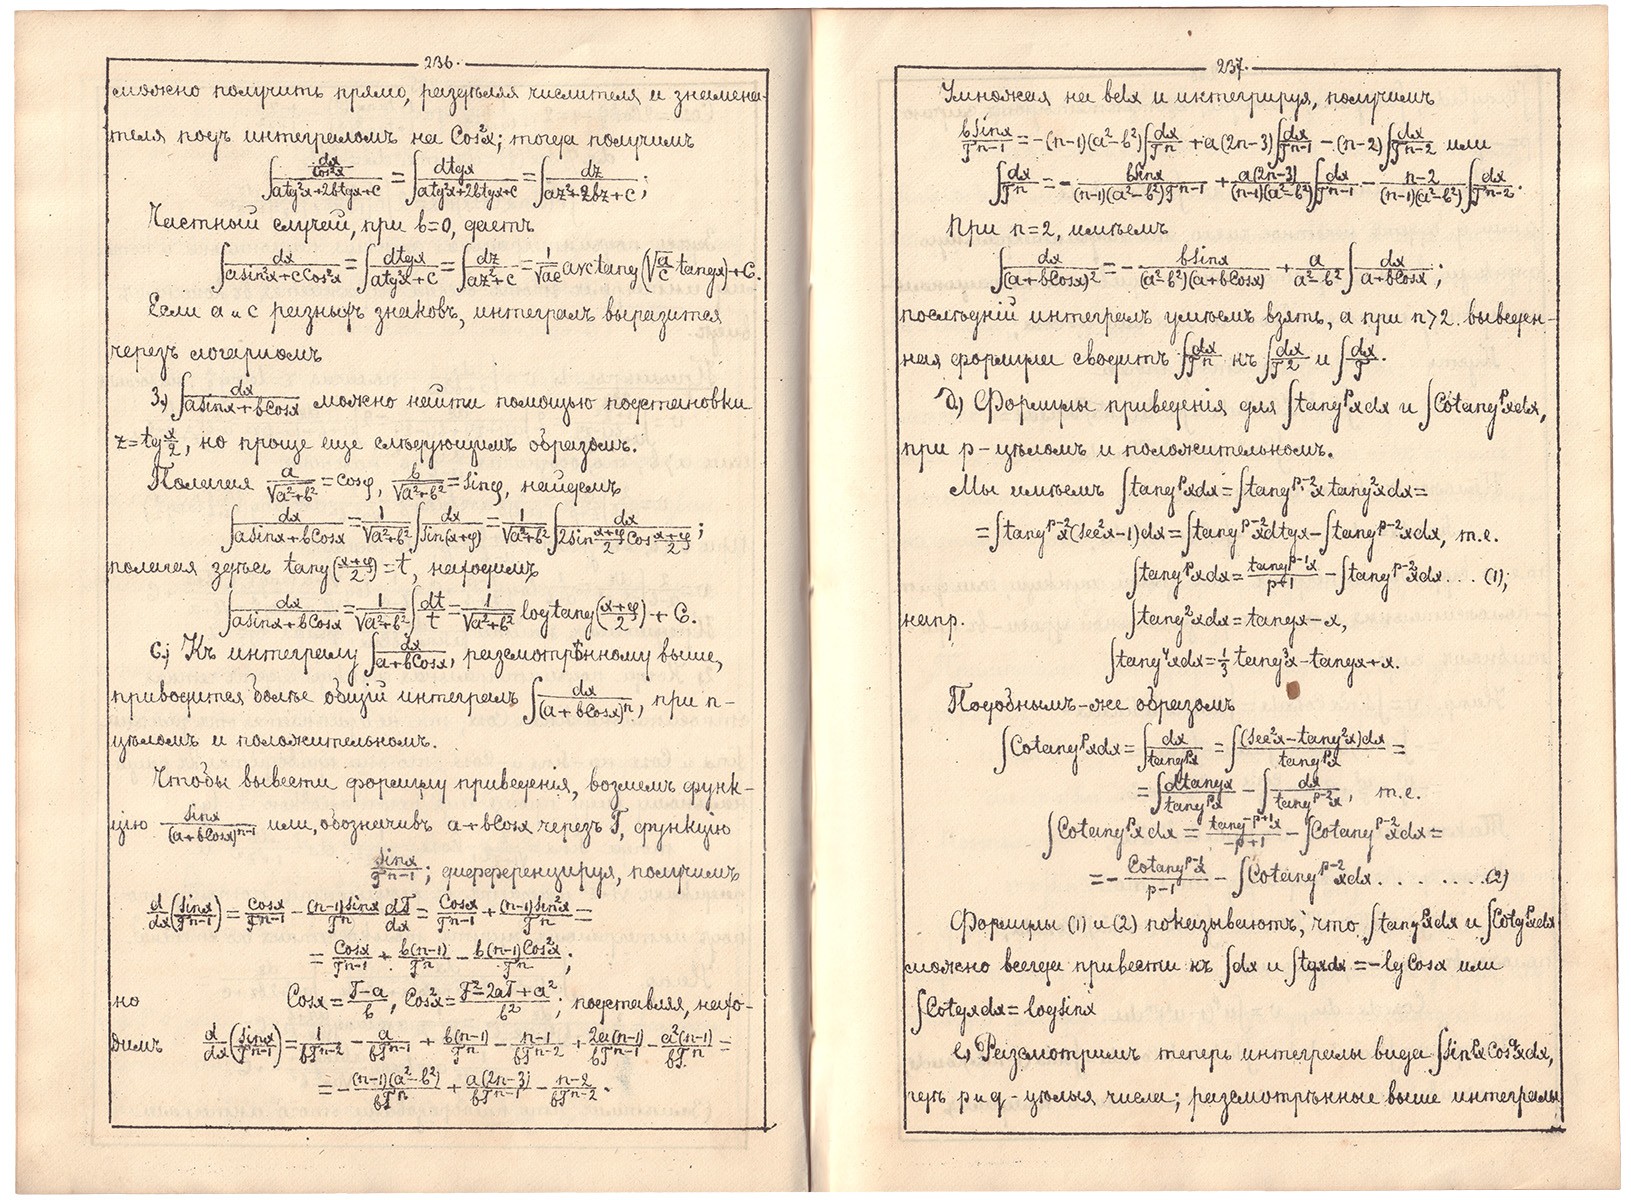 236.
можно получить прямо, раздѣляя числителя и знамена-
теля подъ интеграломъ на Cos²x; тогда получимъ
∫ (dx/Cos²x)/(atg²x+2btgx+c) = ∫ dtgx/(atg²x+2btgx+c) = ∫ dz/(az²+2bz+c);
Частный случай, при b=0, даетъ
∫ dx/(asin²x+cCos²x) = ∫ dtgx/(atg²x+c) = ∫ dz/(az²+c) = 1/√ac arctang(√(a/c) tangx)+C.
Если a и c разныхъ знаковъ, интегралъ выразится
черезъ логариѳмъ
3.) ∫ dx/(asinx+bCosx) можно найти помощью подстановки
z=tg x/2, но проще еще слѣдующимъ образомъ.
Полагая a/√(a²+b²) = cosφ, b/√(a²+b²) = sinφ, найдемъ
∫ dx/(asinx+bCosx) = 1/√(a²+b²) ∫ dx/sin(x+φ) = 1/√(a²+b²) ∫ dx/(2sin (x+φ)/2 Cos (x+φ)/2);
полагая здѣсь tang((x+φ)/2)=t, находимъ
∫ dx/(asinx+bCosx) = 1/√(a²+b²) ∫ dt/t = 1/√(a²+b²) log tang((x+φ)/2)+C.
C.) Къ интегралу ∫ dx/(a+bCosx), разсмотрѣнному выше,
приводится болѣе общій интегралъ ∫ dx/(a+bCosx)ⁿ, при n-
цѣломъ и положительномъ.
Чтобы вывести формулу приведенія, возмемъ функ-
цію sinx/(a+bCosx)ⁿ⁻¹ или, обозначивъ a+bCosx черезъ T, функцію
sinx/Tⁿ⁻¹; дифференцируя, получимъ
d/dx(sinx/Tⁿ⁻¹) = cosx/Tⁿ⁻¹ - (n-1)sinx/Tⁿ dT/dx = Cosx/Tⁿ⁻¹ + (n-1)sin²x/Tⁿ =
= Cosx/Tⁿ⁻¹ + b(n-1)/Tⁿ - b(n-1)Cos²x/Tⁿ;
но Cosx = (T-a)/b, Cos²x = (T²-2aT+a²)/b²; подставляя, нахо-
димъ d/dx(sinx/Tⁿ⁻¹) = 1/bTⁿ⁻² - a/bTⁿ⁻¹ + b(n-1)/Tⁿ - (n-1)/bTⁿ⁻² + 2a(n-1)/bTⁿ⁻¹ - a²(n-1)/bTⁿ =
= -(n-1)(a²-b²)/bTⁿ + a(2n-3)/bTⁿ⁻¹ - (n-2)/bTⁿ⁻².
237.
Умножая на bdx и интегрируя, получимъ
bsinx/Tⁿ⁻¹ = -(n-1)(a²-b²)∫dx/Tⁿ + a(2n-3)∫dx/Tⁿ⁻¹ - (n-2)∫dx/Tⁿ⁻² или
∫dx/Tⁿ = - bsinx/((n-1)(a²-b²)Tⁿ⁻¹) + a(2n-3)/((n-1)(a²-b²)) ∫dx/Tⁿ⁻¹ - (n-2)/((n-1)(a²-b²)) ∫dx/Tⁿ⁻².
При n=2, имѣемъ
∫ dx/(a+bCosx)² = - bsinx/((a²-b²)(a+bCosx)) + a/(a²-b²) ∫ dx/(a+bCosx);
послѣдній интегралъ умѣемъ взять, а при n>2 выведен-
ная формула сводитъ ∫dx/Tⁿ къ ∫dx/T² и ∫dx/T.
d.) Формулы приведенія для ∫tangᵖxdx и ∫Cotangᵖxdx,
при p-цѣломъ и положительномъ.
Мы имѣемъ ∫tangᵖxdx = ∫tangᵖ⁻²x tang²xdx =
= ∫tangᵖ⁻²x(Sec²x-1)dx = ∫tangᵖ⁻²xdtgx - ∫tangᵖ⁻²xdx, т.е.
∫tangᵖxdx = tangᵖ⁻¹x/(p+1) - ∫tangᵖ⁻²xdx... (1);
напр. ∫tang²xdx = tangx - x,
∫tang⁴xdx = 1/3 tang³x - tangx + x.
Подобнымъ-же образомъ
∫Cotangᵖxdx = ∫dx/tangᵖx = ∫(Sec²x-tang²x)dx/tangᵖx =
= ∫dtangx/tangᵖx - ∫dx/tangᵖ⁻²x, т.е.
∫Cotangᵖxdx = tang⁻ᵖ⁺¹x/(-p+1) - ∫Cotangᵖ⁻²xdx =
= - Cotangᵖ⁻¹x/(p-1) - ∫Cotangᵖ⁻²xdx. . . . . . . .(2)
Формулы (1) и (2) показываютъ, что ∫tangᵖxdx и ∫Cotgᵖxdx
можно всегда привести къ ∫dx и ∫tgxdx = -lgCosx или
∫Cotgxdx = logsinx
e.) Разсмотримъ теперь интегралы вида ∫sinᵖxCos𐞥xdx,
гдѣ p и q - цѣлыя числа; разсмотрѣнные выше интегралы